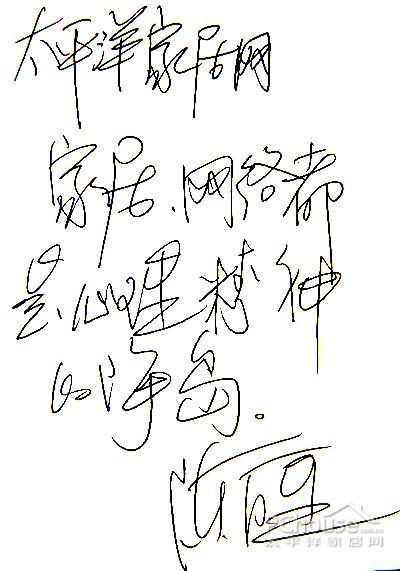 太平洋家居网
家居、网络都
是心理精神
的海岛。
PChouse
太平洋家居网